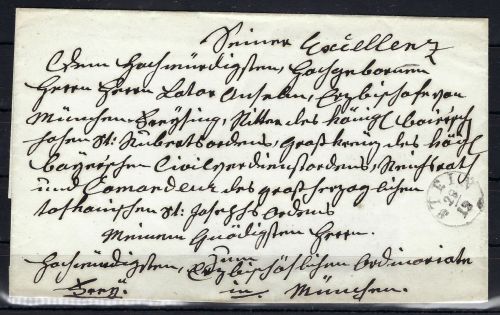 Seiner Excellenz
Dem Hochwürdigsten, Hochgebornen
Herrn Herrn Lotar Anselm, Erzbischofe von
München Freysing, Ritter des königl bairisch
hohen St: Huberts ordens, Großkreuz des königl
bayerischen Civilverdienstordens, Reichsrath
und Comandeur des großherzoglichen
toskanischen St: Josephs Ordens
Meinem Gnädigsten Herrn.
zum
Hochwürdigsten, Erzbischöflichen Ordinariate
in München.
STEIN